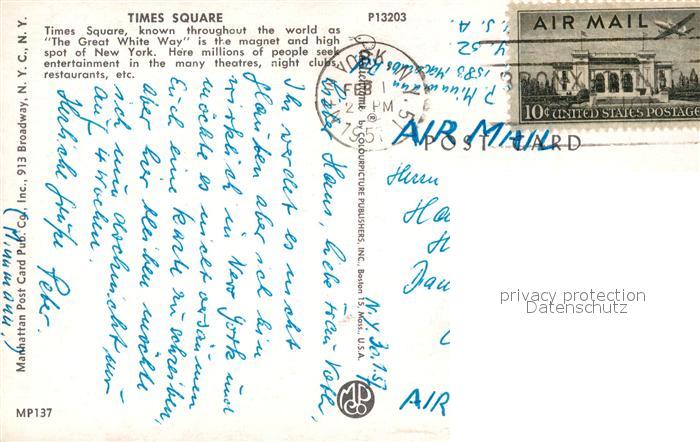 TIMES SQUARE
Times Square, known throughout the world as
"The Great White Way" is the magnet and high
spot of New York. Here millions of people seek
entertainment in the many theatres, night clubs,
restaurants, etc.
P13203
Manhattan Post Card Pub. Co., Inc., 913 Broadway, N. Y. C., N. Y.
MP137
Plastichrome ® by COLOURPICTURE PUBLISHERS, INC., Boston 15, Mass. U.S.A.
POST CARD
AIR MAIL
10¢ UNITED STATES POSTAGE
YORK, N.Y.
FEB 1
2 PM
1957
AIR MAIL
U. S. A.
N.Y. 30.1.57
Lieber Hans, liebe Frau Voth,
Ihr werdet es nicht
glauben aber ich bin
wirklich in New York und
möchte es nicht versäumen
Euch eine Karte zu schreiben,
aber hier bleiben möchte
ich nun doch nicht nur
auf 4 Wochen.
Herzliche Grüße Peter.
(Minumann!)
Herrn
Ha
H
Dau
AIR
MPCo
privacy protection
Datenschutz